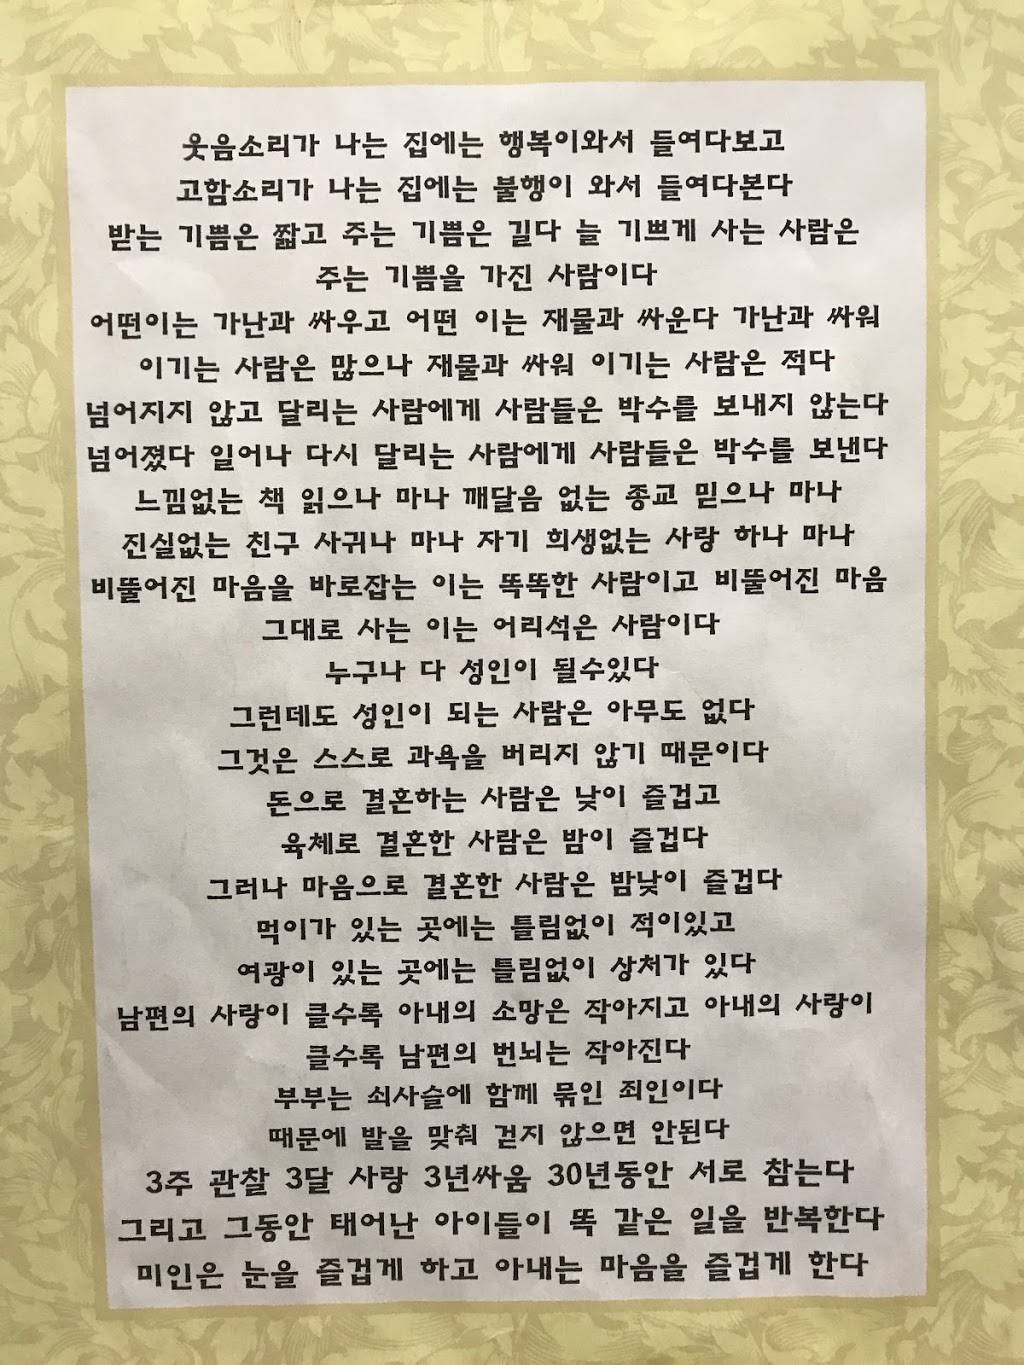 웃음소리가 나는 집에는 행복이와서 들여다보고
고함소리가 나는 집에는 불행이 와서 들여다본다
받는 기쁨은 짧고 주는 기쁨은 길다 늘 기쁘게 사는 사람은
주는 기쁨을 가진 사람이다
어떤이는 가난과 싸우고 어떤 이는 재물과 싸운다 가난과 싸워
이기는 사람은 많으나 재물과 싸워 이기는 사람은 적다
넘어지지 않고 달리는 사람에게 사람들은 박수를 보내지 않는다
넘어졌다 일어나 다시 달리는 사람에게 사람들은 박수를 보낸다
느낌없는 책 읽으나 마나 깨달음 없는 종교 믿으나 마나
진실없는 친구 사귀나 마나 자기 희생없는 사랑 하나 마나
비뚤어진 마음을 바로잡는 이는 똑똑한 사람이고 비뚤어진 마음
그대로 사는 이는 어리석은 사람이다
누구나 다 성인이 될수있다
그런데도 성인이 되는 사람은 아무도 없다
그것은 스스로 과욕을 버리지 않기 때문이다
돈으로 결혼하는 사람은 낮이 즐겁고
육체로 결혼한 사람은 밤이 즐겁다
그러나 마음으로 결혼한 사람은 밤낮이 즐겁다
먹이가 있는 곳에는 틀림없이 적이있고
여광이 있는 곳에는 틀림없이 상처가 있다
남편의 사랑이 클수록 아내의 소망은 작아지고 아내의 사랑이
클수록 남편의 번뇌는 작아진다
부부는 쇠사슬에 함께 묶인 죄인이다
때문에 발을 맞춰 걷지 않으면 안된다
3주 관찰 3달 사랑 3년싸움 30년동안 서로 참는다
그리고 그동안 태어난 아이들이 똑 같은 일을 반복한다
미인은 눈을 즐겁게 하고 아내는 마음을 즐겁게 한다